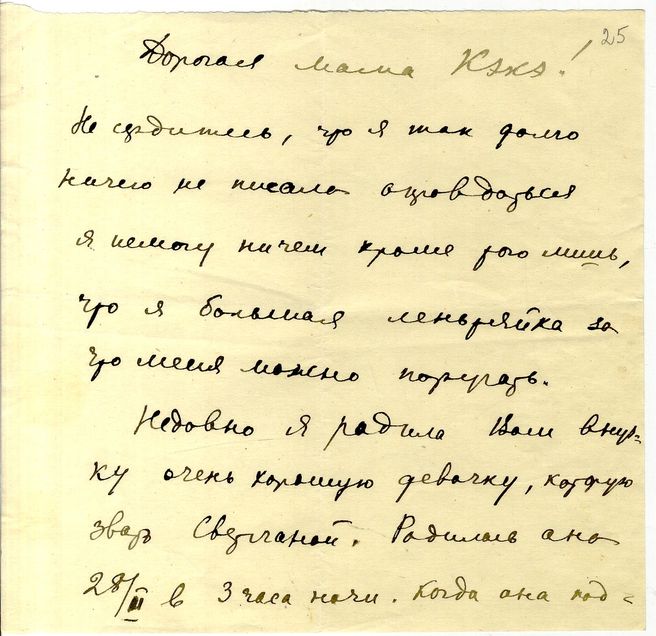 25
Дорогая мама Кэкэ!
Не сердитесь, что я так долго
ничего не писала оправдаться
я не могу ничем кроме того лишь,
что я большая леньтяйка за
что меня можно поругать.
Недовно я родила Вам внуч=
ку очень хорошую девочку, которую
звать Светланой. Родилась она
28/II в 3 часа ночи. Когда она под=